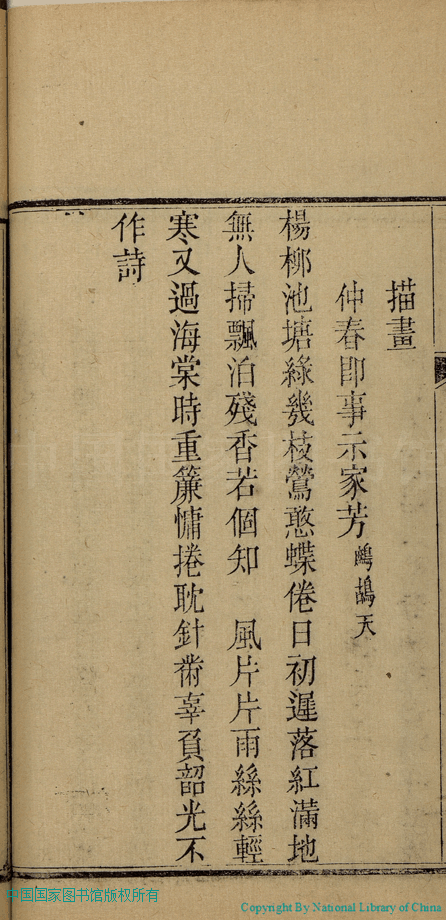 描畫
仲春即事示家芳 鷓鴣天
楊柳池塘綠幾枝鶯憨蝶倦日初遲落紅滿地
無人掃飄泊殘香若個知　風片片雨絲絲輕
寒又過海棠時重簾慵捲耽針黹辜負韶光不
作詩
中国国家图书馆版权所有
Copyright By National Library of China